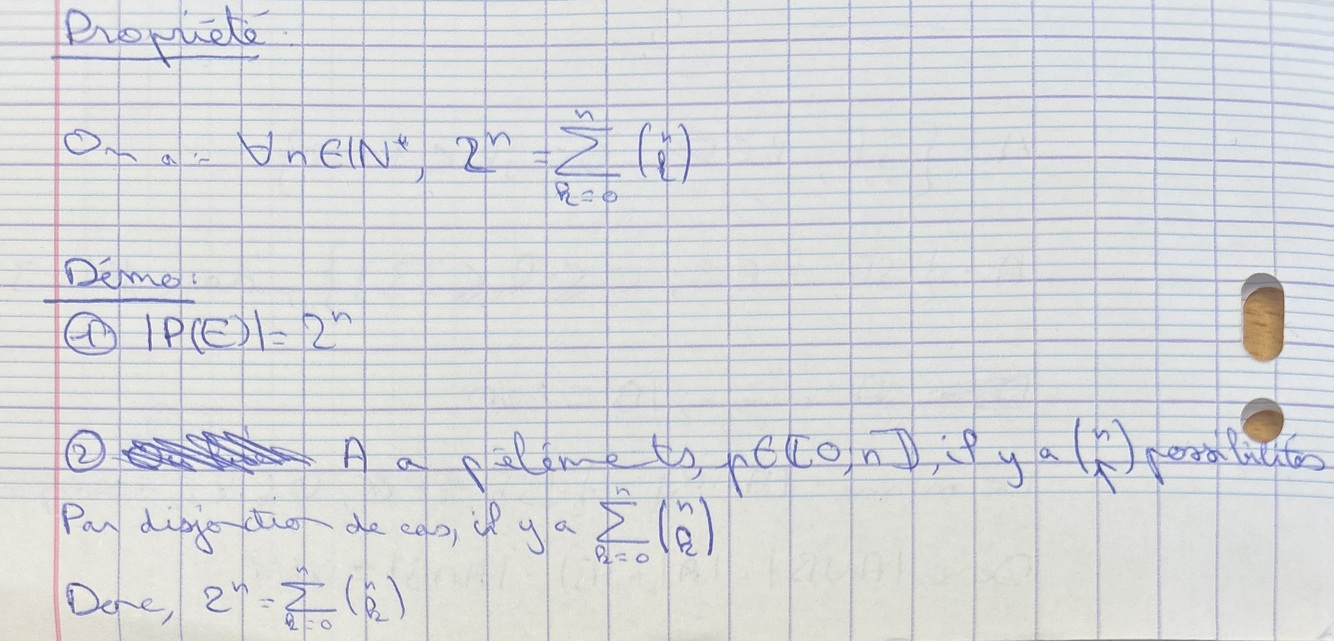 Propriété :
On a : ∀n∈ℕ*, 2^n = ∑_{k=0}^{n} (n k)
Démo :
① |P(E)| = 2^n
② A a p éléments, p∈[[0,n]], il y a (n p) possibilités
Par disjonction de cas, il y a ∑_{k=0}^{n} (n k)
Donc, 2^n = ∑_{k=0}^{n} (n k)